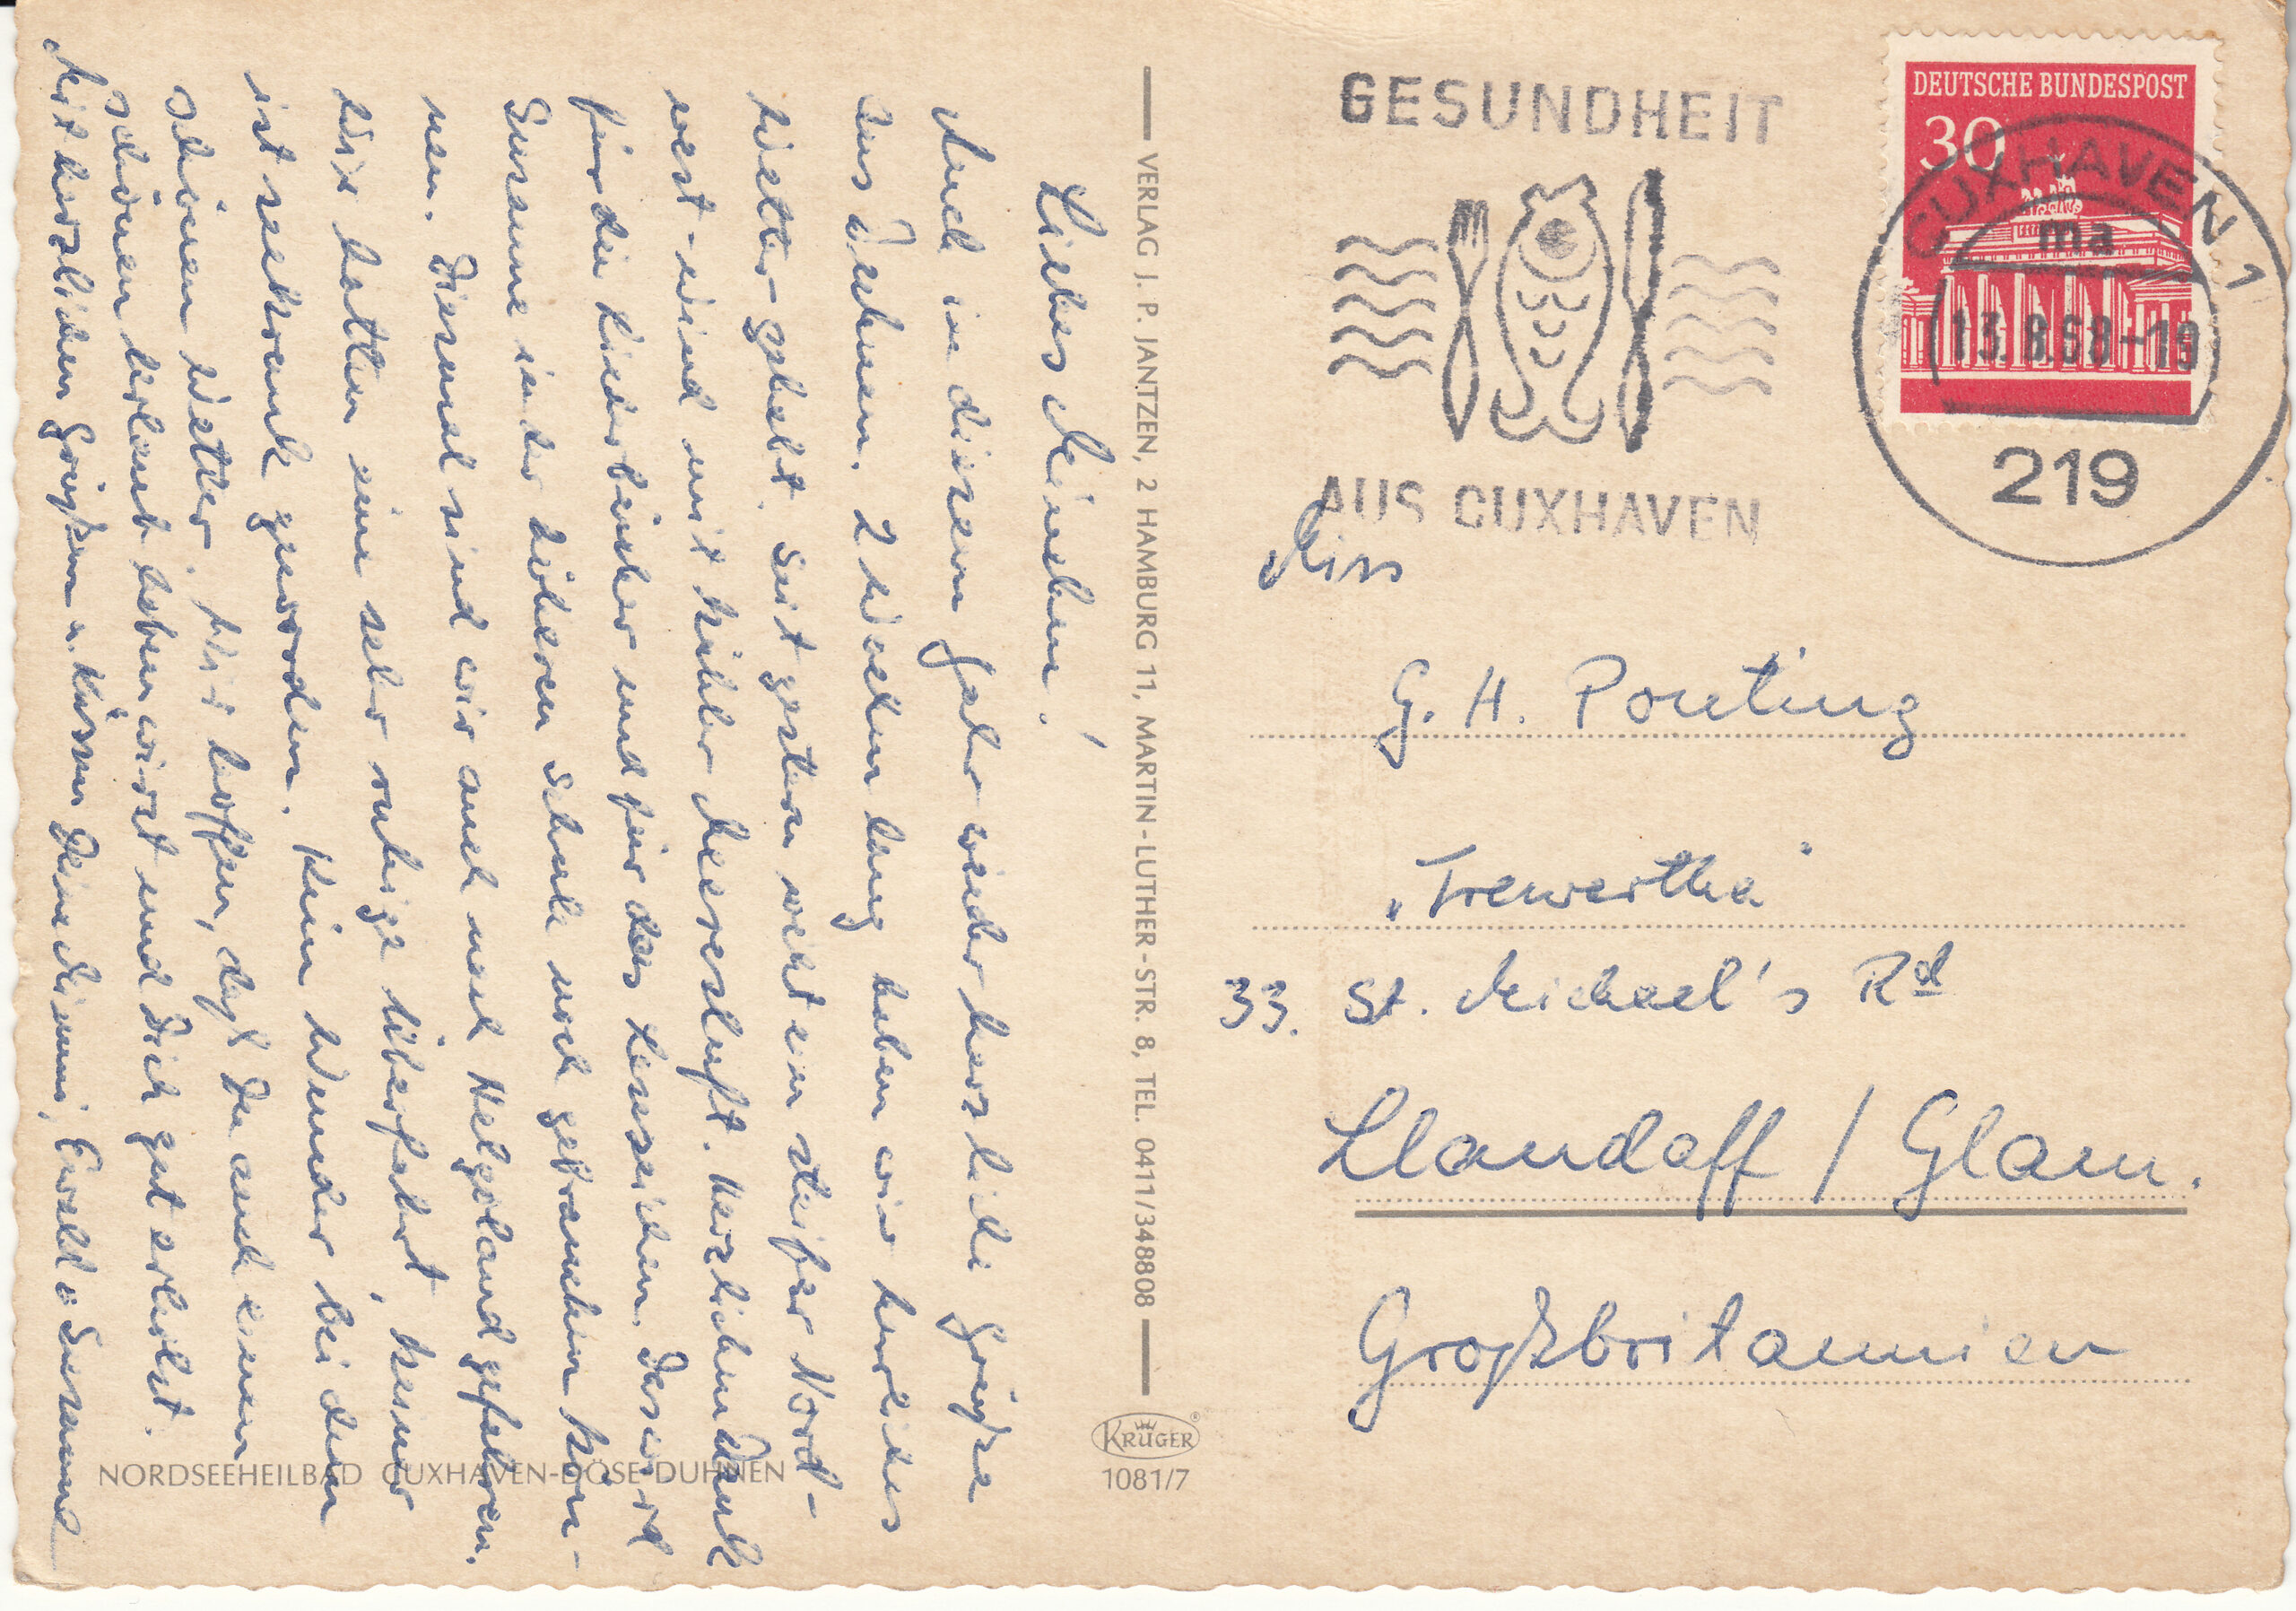 Liebes Mienchen!
Auch in diesem Jahr wieder herzliche Grüße
aus Duhnen. 2 Wochen lang haben wir herrliches
Wetter gehabt. Seit gestern weht ein steifer Nord-
west-Wind mit kühler Meeresluft. Herzlichen Dank
für die Liederbücher und für das Lesezeichen. Das wird
Susanne in der höheren Schule noch gebrauchen kön-
nen. Diesmal sind wir auch nach Helgoland gefahren.
Wir hatten eine sehr ruhige Überfahrt, keiner
ist seekrank geworden. Kein Wunder bei dem
schönen Wetter. Wir hoffen, daß Du auch einen
schönen Urlaub haben wirst und Dich gut erholst.
Mit herzlichen Grüßen u. Küssen Deine Mimmi, Ewald u Susanne
NORDSEEHEILBAD CUXHAVEN-DÖSE-DUHNEN
VERLAG J. P. JANTZEN, 2 HAMBURG 11, MARTIN-LUTHER-STR. 8, TEL. 0411/348808
KRÜGER
1081/7
GESUNDHEIT
AUS CUXHAVEN
DEUTSCHE BUNDESPOST
30
CUXHAVEN 1
ma
13.8.68-19
219
Miss
G. H. Ponting
„Trewartha"
33. St. Michael's Rd
Llandaff / Glam.
Großbritannien